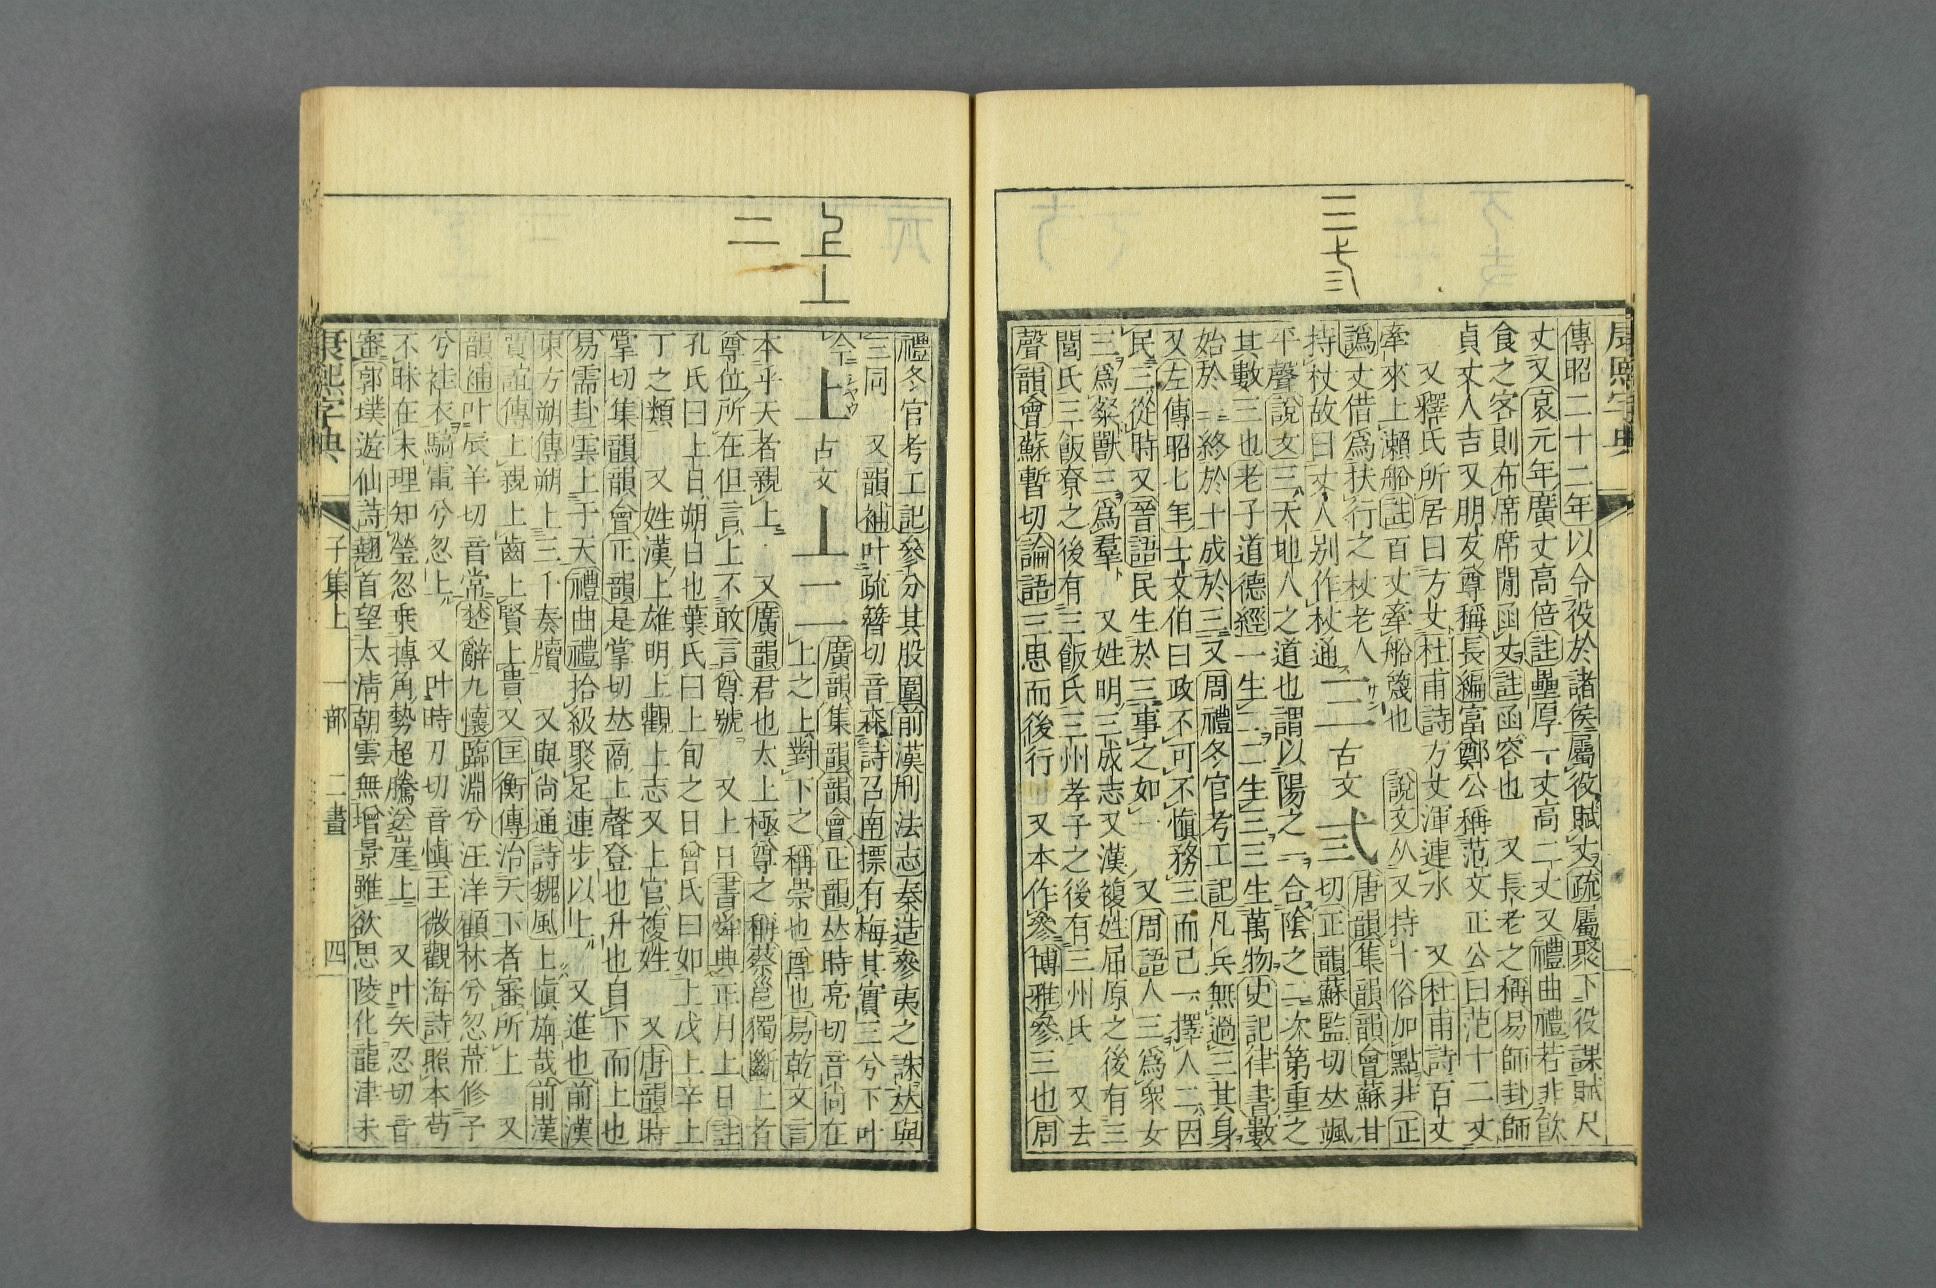 三弎
傳昭二十二年以令役於諸侯屬役賦丈疏屬聚下役課賦尺
丈又哀元年廣丈高倍註壘厚一丈高二丈又禮曲禮若非飮
食之客則布席席閒函丈註函容也 又長老之稱易師卦師
貞丈人吉又朋友尊稱長編富鄭公稱范文正公曰范十二丈
又釋氏所居曰方丈杜甫詩方丈渾連水 又杜甫詩百丈
牽來上瀨船註百丈牽船篾也 說文从又持十俗加點非正
譌丈借爲扶行之杖老人
持杖故曰丈人別作杖通 三 古文 弎 唐韻集韻韻會蘇甘
切正韻蘇監切𠀤颯
平聲說文三天地人之道也謂以陽之一合陰之二次第重之
其數三也老子道德經一生二二生三三生萬物史記律書數
始於一終於十成於三又周禮冬官考工記凡兵無過三其身
又左傳昭七年士文伯曰政不可不愼務三而已一擇人二因
民三從時又晉語民生於三事之如一 又周語人三爲衆女
三爲粲獸三爲羣 又姓明三成志又漢複姓屈原之後有三
閭氏三飯尞之後有三飯氏三州孝子之後有三州氏 又去
聲韻會蘇暫切論語三思而後行 又本作參博雅參三也周
上丄
二
禮冬官考工記參分其股圍前漢刑法志秦造參夷之誅𠀤與
三同 又韻補叶疏簪切音森詩召南摽有梅其實三兮下叶
今 上 古文 丄二 廣韻集韻韻會正韻𠀤時亮切音尙在
上之上對下之稱崇也尊也易乾文言
本乎天者親上 又廣韻君也太上極尊之稱蔡邕獨斷上者
尊位所在但言上不敢言尊號 又上日書舜典正月上日註
孔氏曰上日朔日也葉氏曰上旬之日曾氏曰如上戊上辛上
丁之類 又姓漢上雄明上觀上志又上官複姓 又唐韻時
掌切集韻韻會正韻是掌切𠀤商上聲登也升也自下而上也
易需卦雲上于天禮曲禮拾級聚足連步以上 又進也前漢
東方朔傳朔上三千奏牘 又與尙通詩魏風上愼旃哉前漢
賈誼傳上親上齒上賢上貴又匡衡傳治天下者審所上 又
韻補叶辰羊切音常楚辭九懷臨淵兮汪洋顧林兮忽荒修予
兮袿衣騎霓兮忽上 又叶時刃切音愼王微觀海詩照本苟
不昧在末理知瑩忽乗摶角勢超騰送崖上 又叶矢忍切音
審郭璞遊仙詩翹首望太淸朝雲無增景雖欲思陵化龍津未
康熙字典 子集上 一部 二畫 四